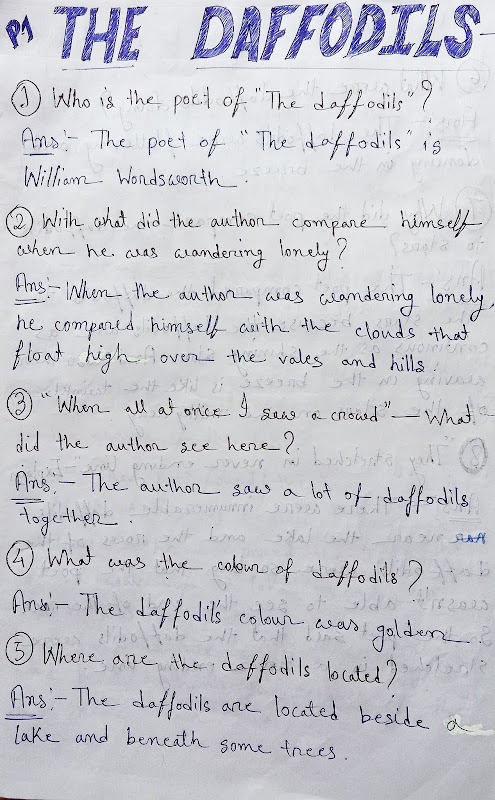 P1 THE DAFFODILS
① Who is the poet of "The daffodils"?
Ans:- The poet of "The daffodils" is
William Wordsworth.
② With what did the author compare himself
when he was wandering lonely?
Ans:- When the author was wandering lonely,
he compared himself with the clouds that
float high over the vales and hills.
③ "When all at once I saw a crowd" — What
did the author see here?
Ans:- The author saw a lot of daffodils
together.
④ What was the colour of daffodils?
Ans:- The daffodils colour was golden.
⑤ Where are the daffodils located?
Ans:- The daffodils are located beside a
lake and beneath some trees.